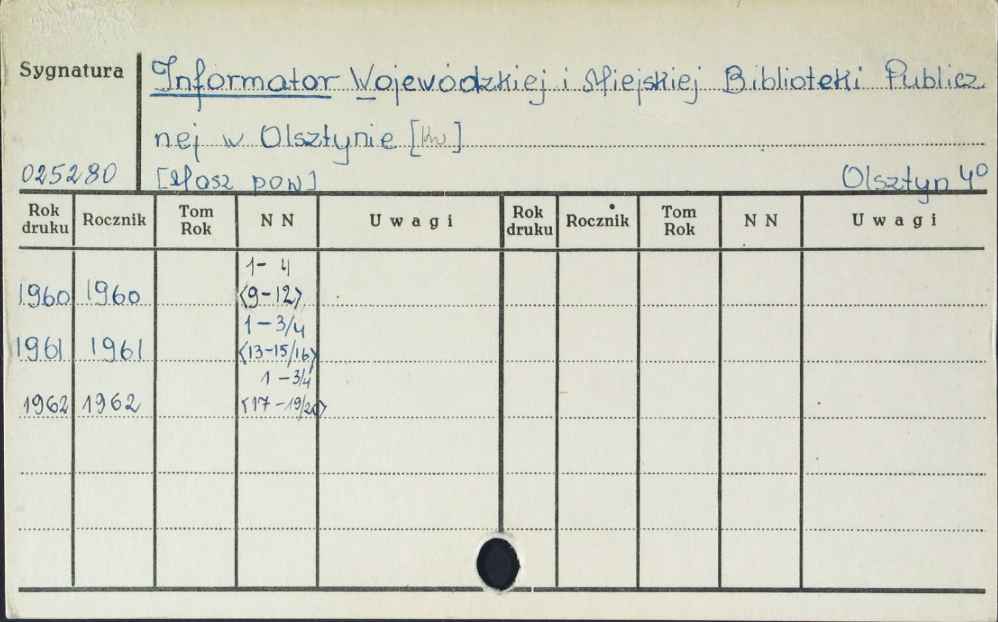 Sygnatura
Informator Wojewódzkiej i Miejskiej Biblioteki Publicz
nej w Olsztynie [Kw]
025280 [Masz pow] Olsztyn 4°
Rok druku Rocznik Tom Rok N N Uwagi Rok druku Rocznik Tom Rok N N Uwagi
1- 4
1960 1960 <9-12>
1-3/4
1961 1961 <13-15/16>
1-3/4
1962 1962 <17-19/20>